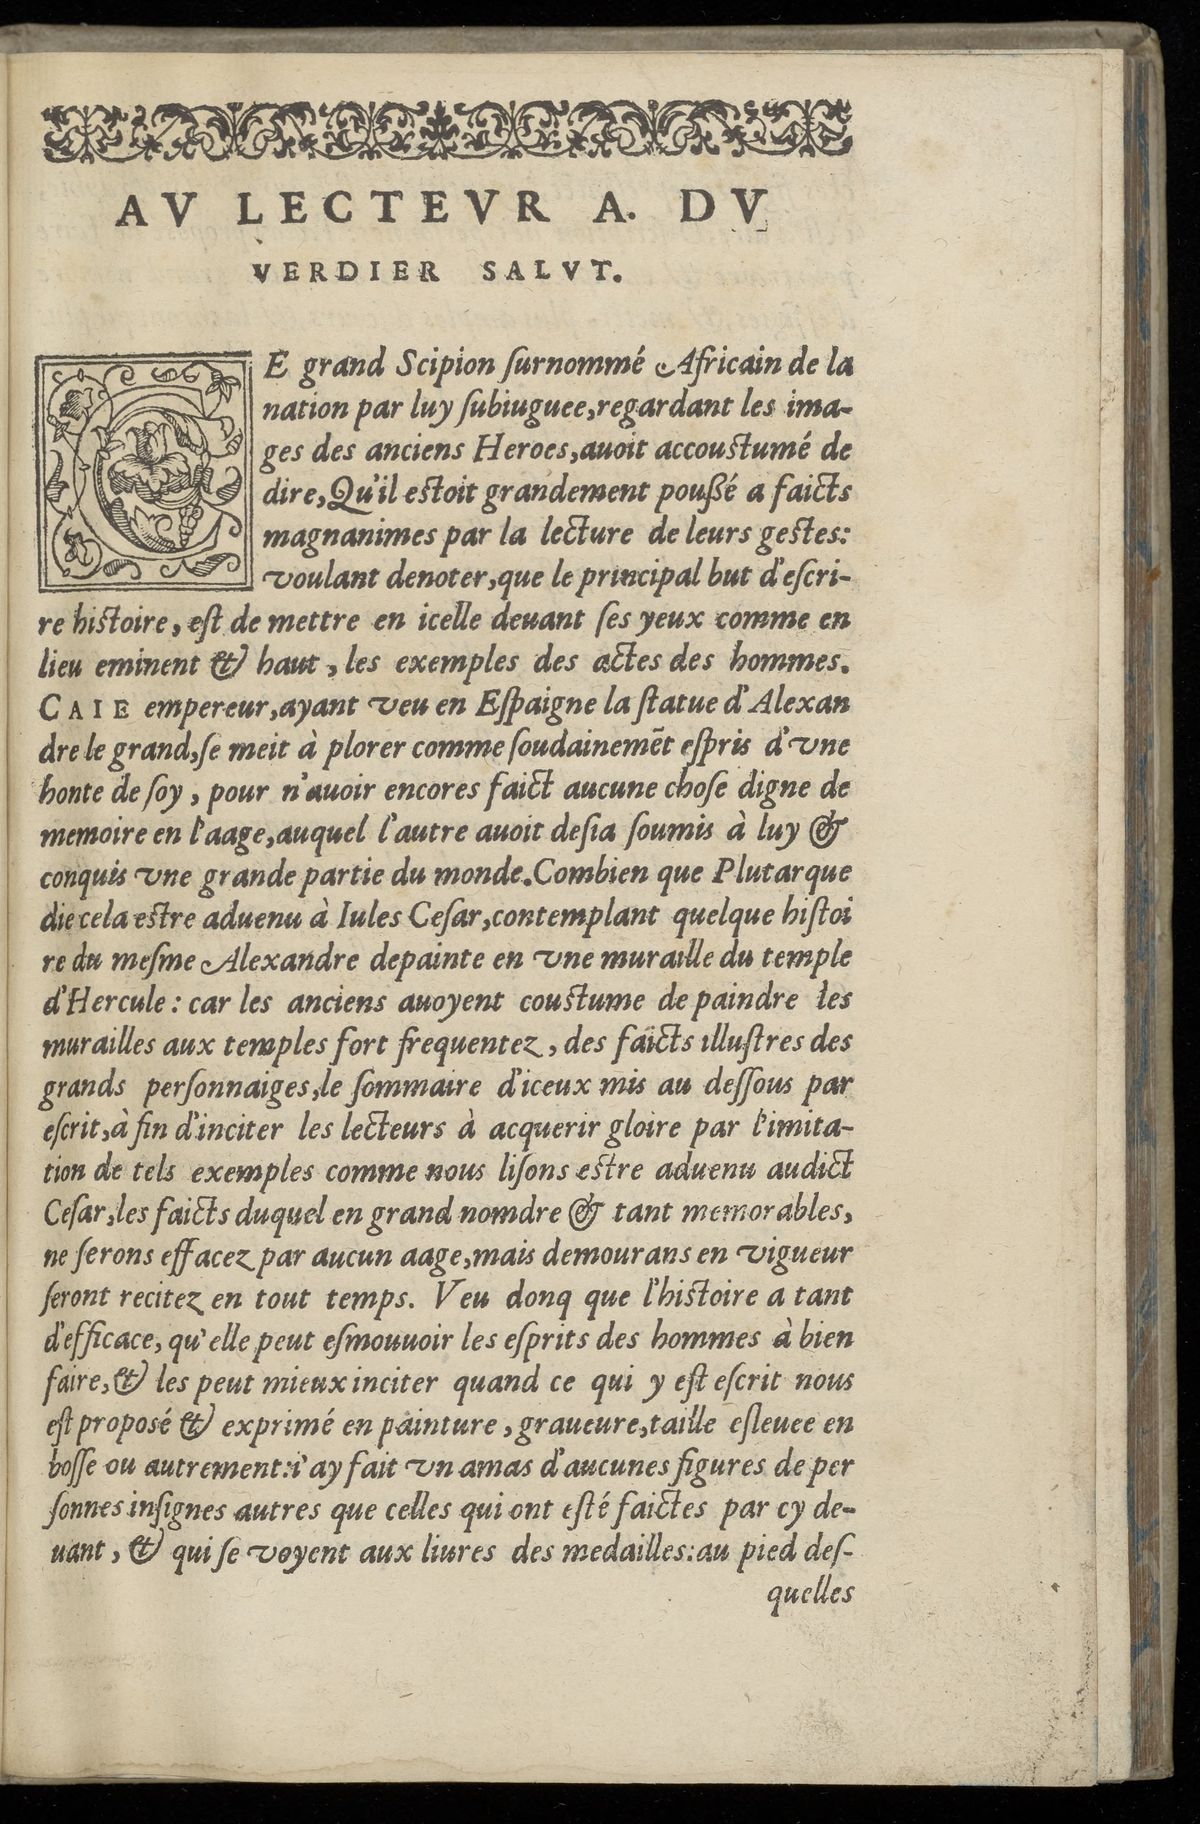 AV LECTEVR A. DV
VERDIER SALVT.
CE grand Scipion ſurnommé Africain de la
nation par luy ſubiuguee,regardant les ima-
ges des anciens Heroes,auoit accouſtumé de
dire,Qu'il eſtoit grandement poußé a faicts
magnanimes par la lecture de leurs geſtes:
voulant denoter,que le principal but d'eſcri-
re hiſtoire, eſt de mettre en icelle deuant ſes yeux comme en
lieu eminent & haut, les exemples des actes des hommes.
CAIE empereur,ayant veu en Eſpaigne la ſtatue d'Alexan
dre le grand,ſe meit à plorer comme ſoudainemẽt eſpris d'vne
honte de ſoy, pour n'auoir encores faict aucune choſe digne de
memoire en l'aage,auquel l'autre auoit deſia ſoumis à luy &
conquis vne grande partie du monde.Combien que Plutarque
die cela eſtre aduenu à Iules Ceſar,contemplant quelque hiſtoi
re du meſme Alexandre depainte en vne muraille du temple
d'Hercule: car les anciens auoyent couſtume de paindre les
murailles aux temples fort frequentez, des faicts illuſtres des
grands perſonnaiges,le ſommaire d'iceux mis au deſſous par
eſcrit,à fin d'inciter les lecteurs à acquerir gloire par l'imita-
tion de tels exemples comme nous liſons eſtre aduenu audict
Ceſar,les faicts duquel en grand nomdre & tant memorables,
ne ſerons effacez par aucun aage,mais demourans en vigueur
ſeront recitez en tout temps. Veu donq que l'hiſtoire a tant
d'efficace, qu'elle peut eſmouuoir les eſprits des hommes à bien
faire,& les peut mieux inciter quand ce qui y eſt eſcrit nous
eſt propoſé & exprimé en painture, graueure,taille eſleuee en
boſſe ou autrement:i'ay fait vn amas d'aucunes figures de per
ſonnes inſignes autres que celles qui ont eſté faictes par cy de-
uant, & qui ſe voyent aux liures des medailles:au pied deſ-
quelles